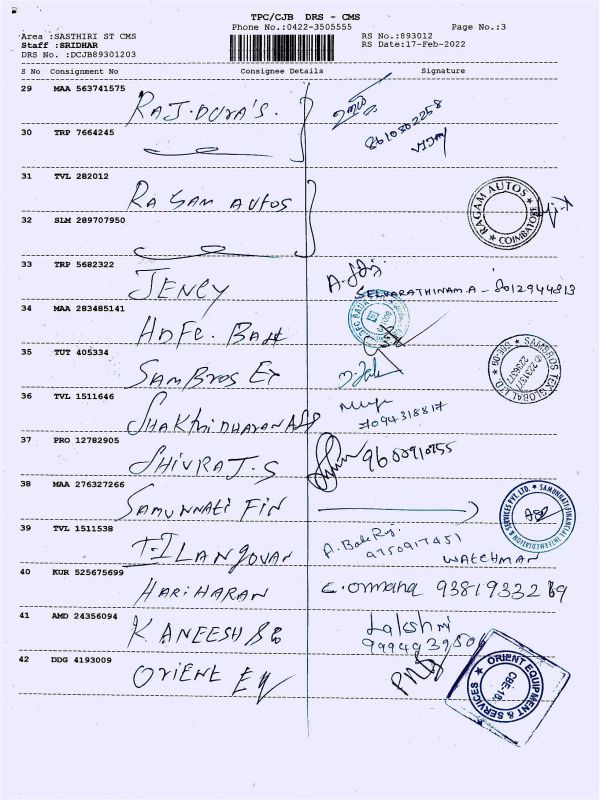 TPC/CJB DRS - CMS
Phone No.:0422-3505555 Page No.:3
Area :SASTHIRI ST CMS RS No.:893012
Staff :SRIDHAR RS Date:17-Feb-2022
DRS No. :DCJB89301203
S No Consignment No Consignee Details Signature
29 MAA 563741575
RAJ.DURA'S.
8610302258
30 TRP 7664245
31 TVL 282012
RAGAM AUTOS
RAGAM AUTOS COIMBATORE
32 SLM 289707950
33 TRP 5682322
JENCY
SELVARATHINAM.A - 8012944813
34 MAA 283485141
HDFC. BANK
35 TUT 405334
SAMBROS EX
SAMBROS TEXGLOBAL LTD.
36 TVL 1511646
SHAKTHIDHARAN
9094318817
37 PRO 12782905
SHIVRAJ.S
9600910755
38 MAA 276327266
SAMUNNATI FIN
SAMUNNATI FINANCIAL INTERMEDIATION & SERVICES PVT. LTD.
39 TVL 1511538
T-ILANGOVAN
9750917451
WATCHMAN
40 KUR 525675699
HARIHARAN
9381933269
41 AMD 24356094
KANEESH
Lakshmi
9994939506
42 DDG 4193009
ORIENT EQ
ORIENT EQUIPMENT & SERVICES CBE-18.